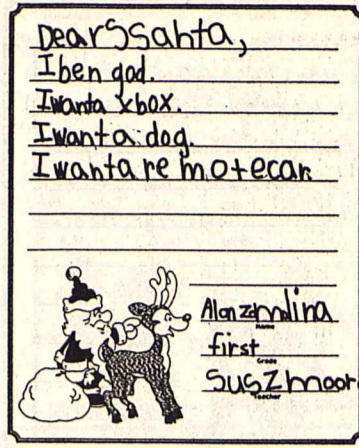 Dear Ssahta,
I ben god.
I wanta xbox.
I want a dog.
I want a re motecar.
Alonzomolina
Name
first
Grade
Suszmoor
Teacher